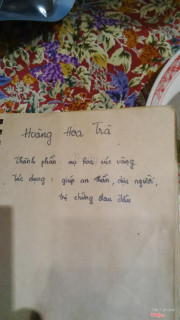 Hoàng Hoa Trà
Thành phần: nụ hoa cúc vàng
Tác dụng: giúp an thần, dịu người,
trị chứng đau đầu